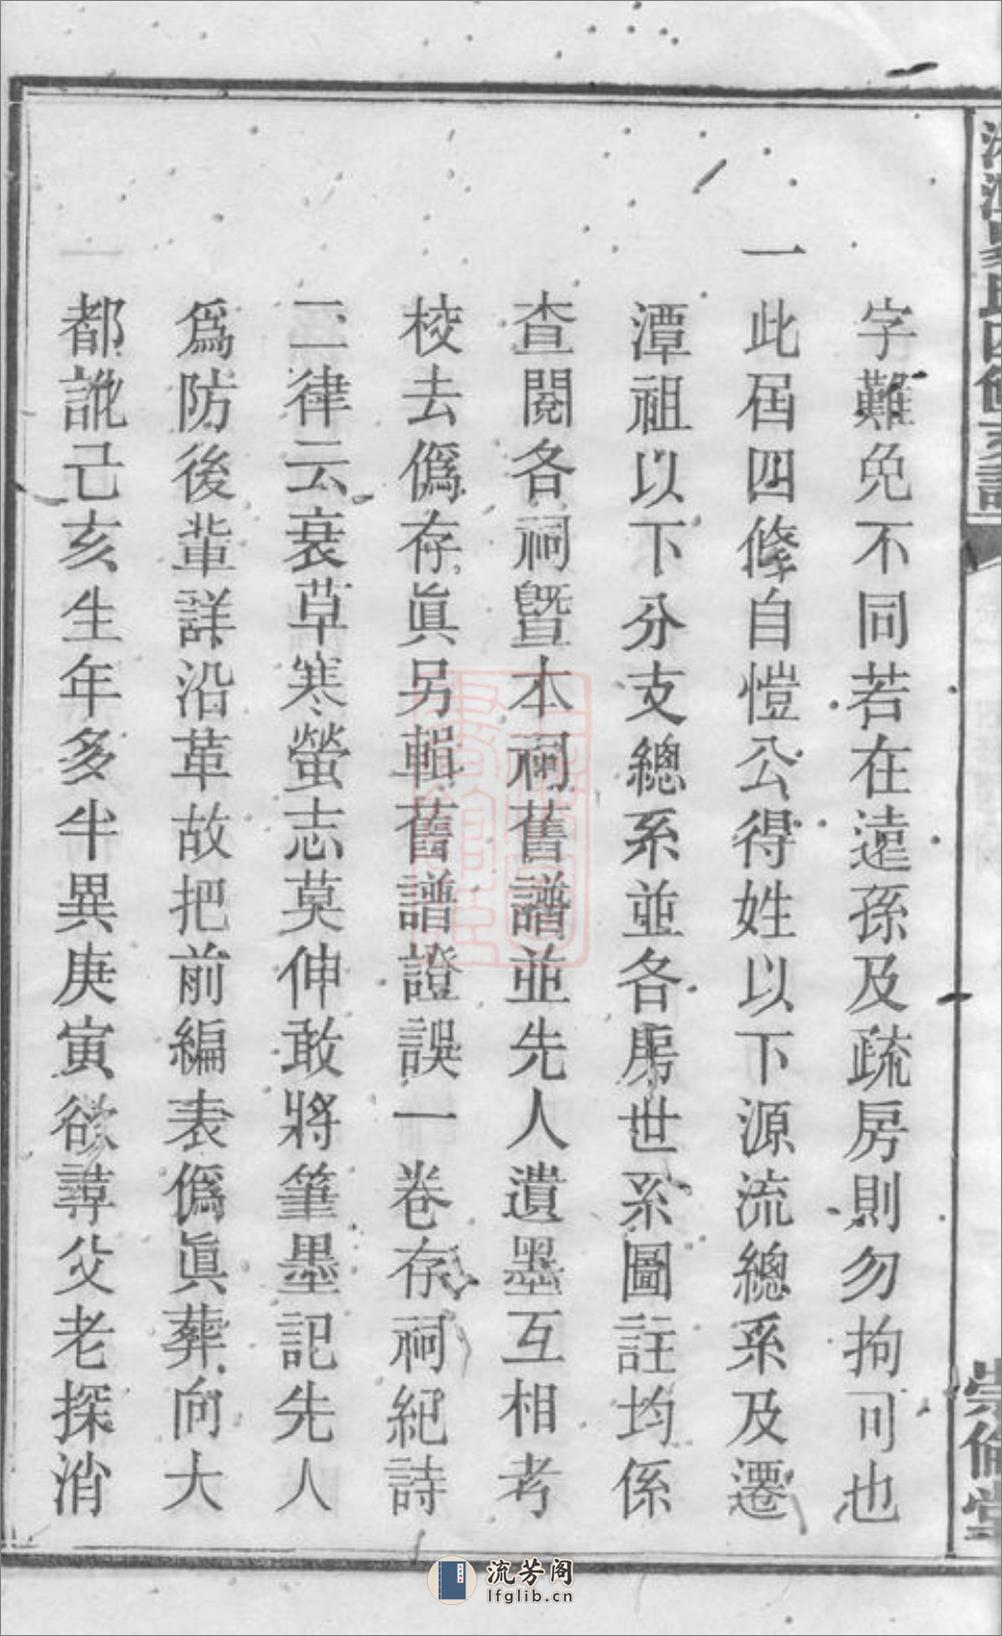 字難免不同若在遠孫及疏房則勿拘可也
一此屆四修自愷公得姓以下源流總系及遷
潭祖以下分支總系並各房世系圖註均係
查閱各祠暨本祠舊譜並先人遺墨互相考
校去僞存眞另輯舊譜證誤一卷存祠紀詩
二律云衰草寒螢志莫伸敢將筆墨記先人
爲防後輩詳沿革故把前編表僞眞葬向大
都訛己亥生年多半異庚寅欲尋父老探消
氏四修支譜
崇倫堂
流芳阁
lfglib.cn